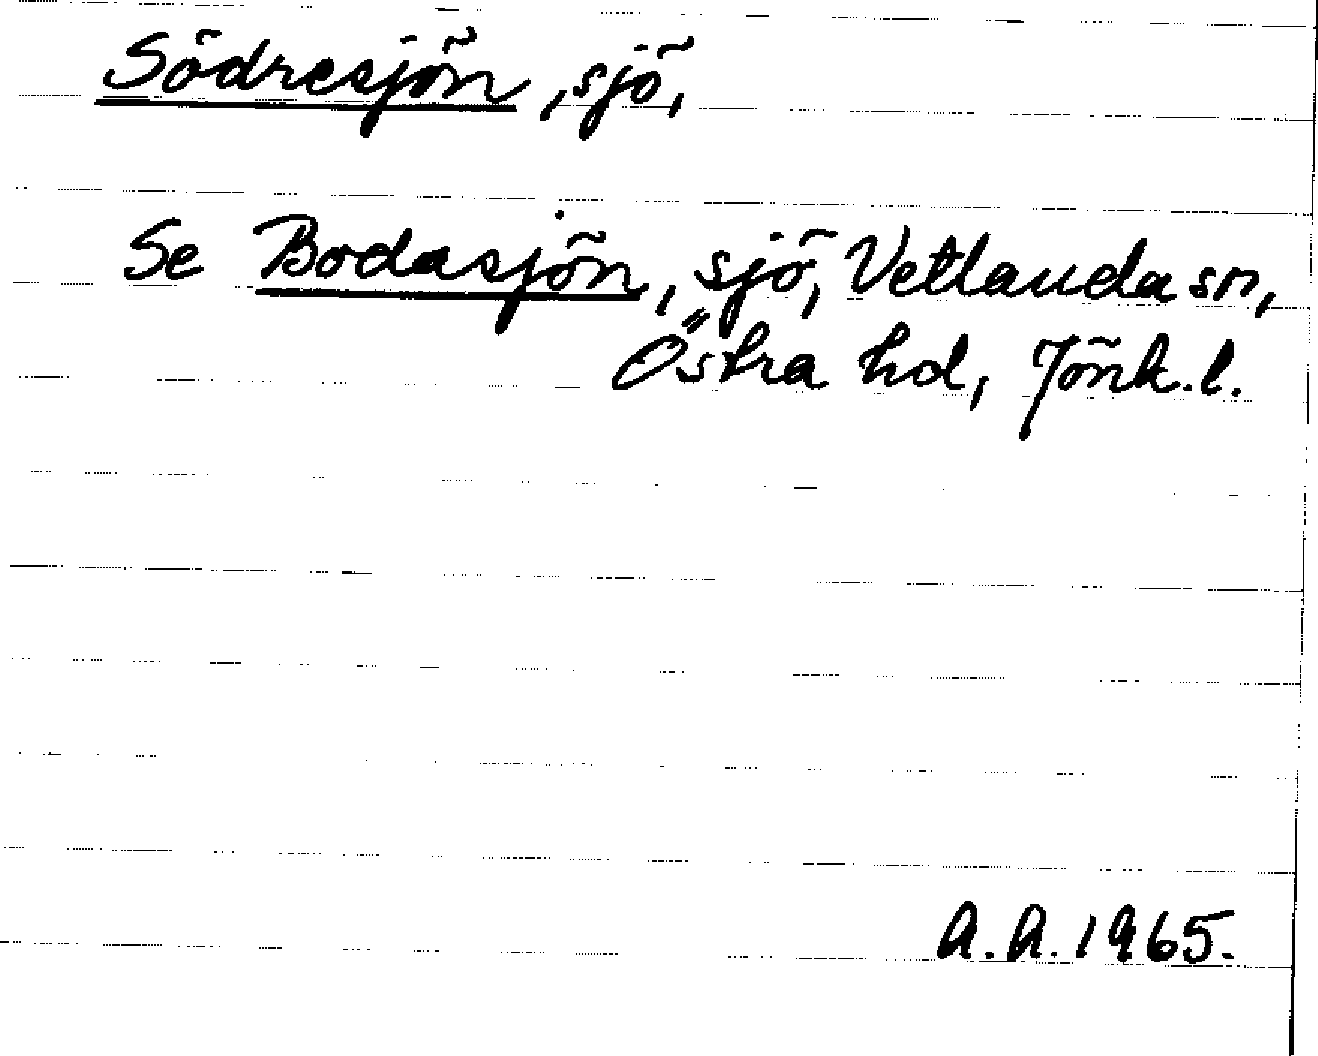 Södresjön, sjö,
Se Bodasjön, sjö, Vetlanda sn,
Östra hd, Jönk.l.
A.A.1965.